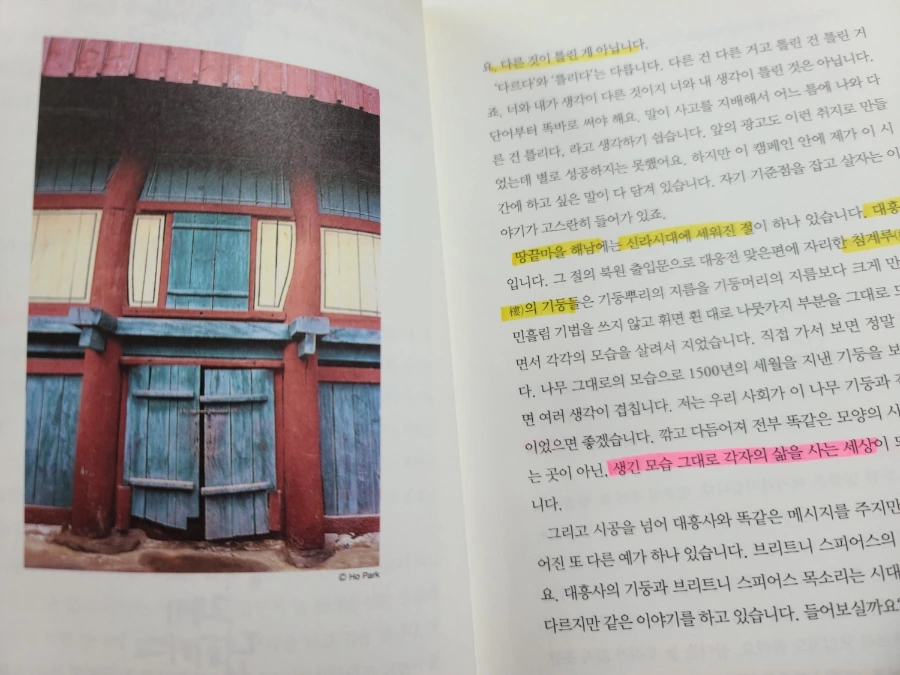 © Ho Park
요, 다른 것이 틀린 게 아닙니다.
'다르다'와 '틀리다'는 다릅니다. 다른 건 다른 거고 틀린 건 틀린 거
죠. 너와 내가 생각이 다른 것이지 너와 내 생각이 틀린 것은 아닙니다.
단어부터 똑바로 써야 해요. 말이 사고를 지배해서 어느 틈에 나와 다
른 건 틀리다. 라고 생각하기 쉽습니다. 앞의 광고도 이런 취지로 만들
었는데 별로 성공하지는 못했어요. 하지만 이 캠페인 안에 제가 이 시
간에 하고 싶은 말이 다 담겨 있습니다. 자기 기준점을 잡고 살자는 이
야기가 고스란히 들어가 있죠.
땅끝마을 해남에는 신라시대에 세워진 절이 하나 있습니다. 대흥
입니다. 그 절의 북원 출입문으로 대웅전 맞은편에 자리한 침계루(
樓)의 기둥들은 기둥뿌리의 지름을 기둥머리의 지름보다 크게 만
민흘림 기법을 쓰지 않고 휘면 휜 대로 나뭇가지 부분을 그대로 드
면서 각각의 모습을 살려서 지었습니다. 직접 가서 보면 정말
다. 나무 그대로의 모습으로 1500년의 세월을 지낸 기둥을 보
면 여러 생각이 겹칩니다. 저는 우리 사회가 이 나무 기둥과
이었으면 좋겠습니다. 깎고 다듬어져 전부 똑같은 모양의 사
는 곳이 아닌, 생긴 모습 그대로 각자의 삶을 사는 세상이
니다.
그리고 시공을 넘어 대흥사와 똑같은 메시지를 주지만
어진 또 다른 예가 하나 있습니다. 브리트니 스피어스의
요. 대흥사의 기둥과 브리트니 스피어스 목소리는 시대
다르지만 같은 이야기를 하고 있습니다. 들어보실까요